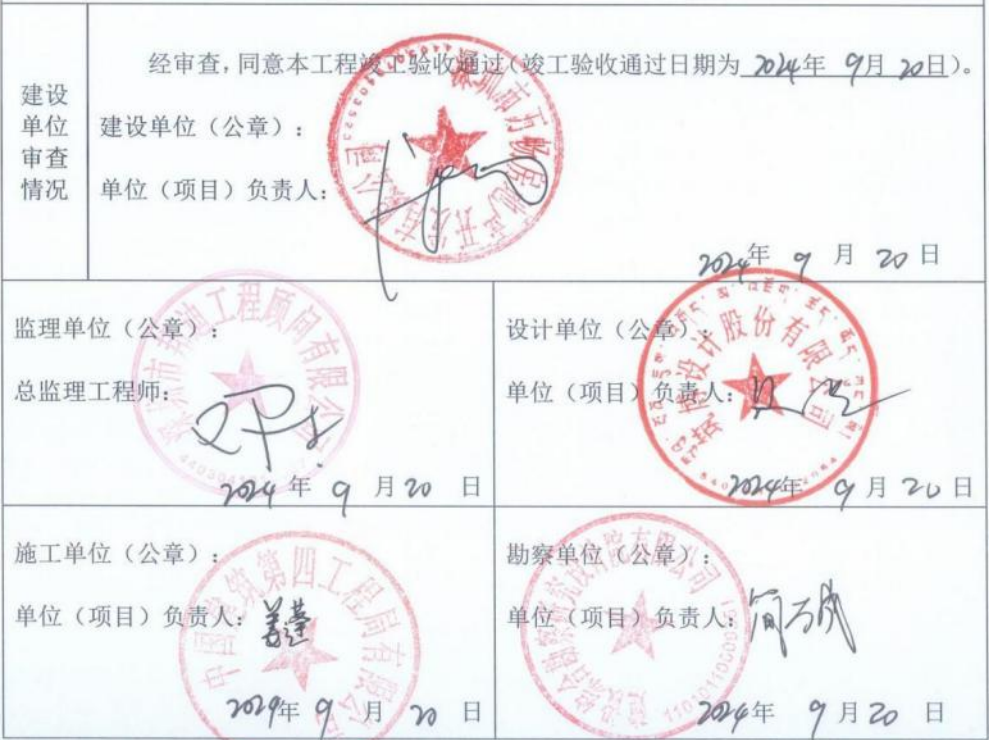 建设单位审查情况
经审查，同意本工程竣工验收通过（竣工验收通过日期为 2024年 9月 20日）。
建设单位（公章）：
单位（项目）负责人：
2024年 9 月 20 日
监理单位（公章）：
总监理工程师：
2024 年 9 月 20 日
工程顾问有限公司
设计单位（公章）：
单位（项目）负责人：
2024年 9 月 20 日
设计股份有限公司
施工单位（公章）：
单位（项目）负责人：姜莲
2024年 9 月 20 日
中国建筑第四工程局有限公司
勘察单位（公章）：
单位（项目）负责人：
2024年 9 月 20 日